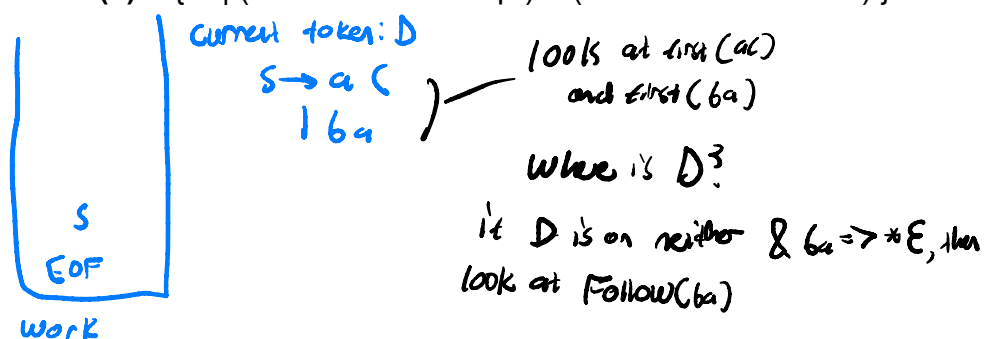 current token: D
S → a C
| b a
look at first(aC)
and first(ba)
Where is D?
if D is on neither & ba =>* ε, then
look at Follow(ba)
S
EOF
work